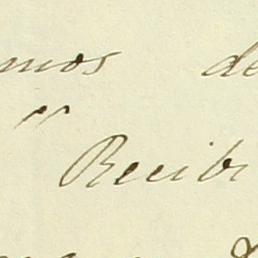 mos de
"
Recibi